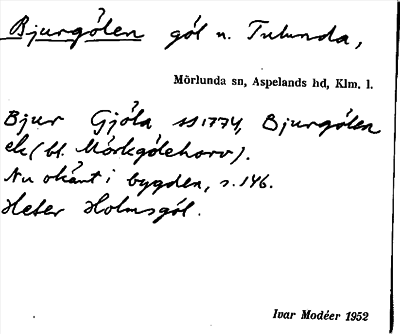 Bjurgölen göl n. Tulunda,
Mörlunda sn, Aspelands hd, Klm. l.
Bjur Gjöla ss 1774, Bjurgölen
ek (bl. Mörkgölehorv).
Nu okänt i bygden, s. 146.
Heter Holmsgöl.
Ivar Modéer 1952